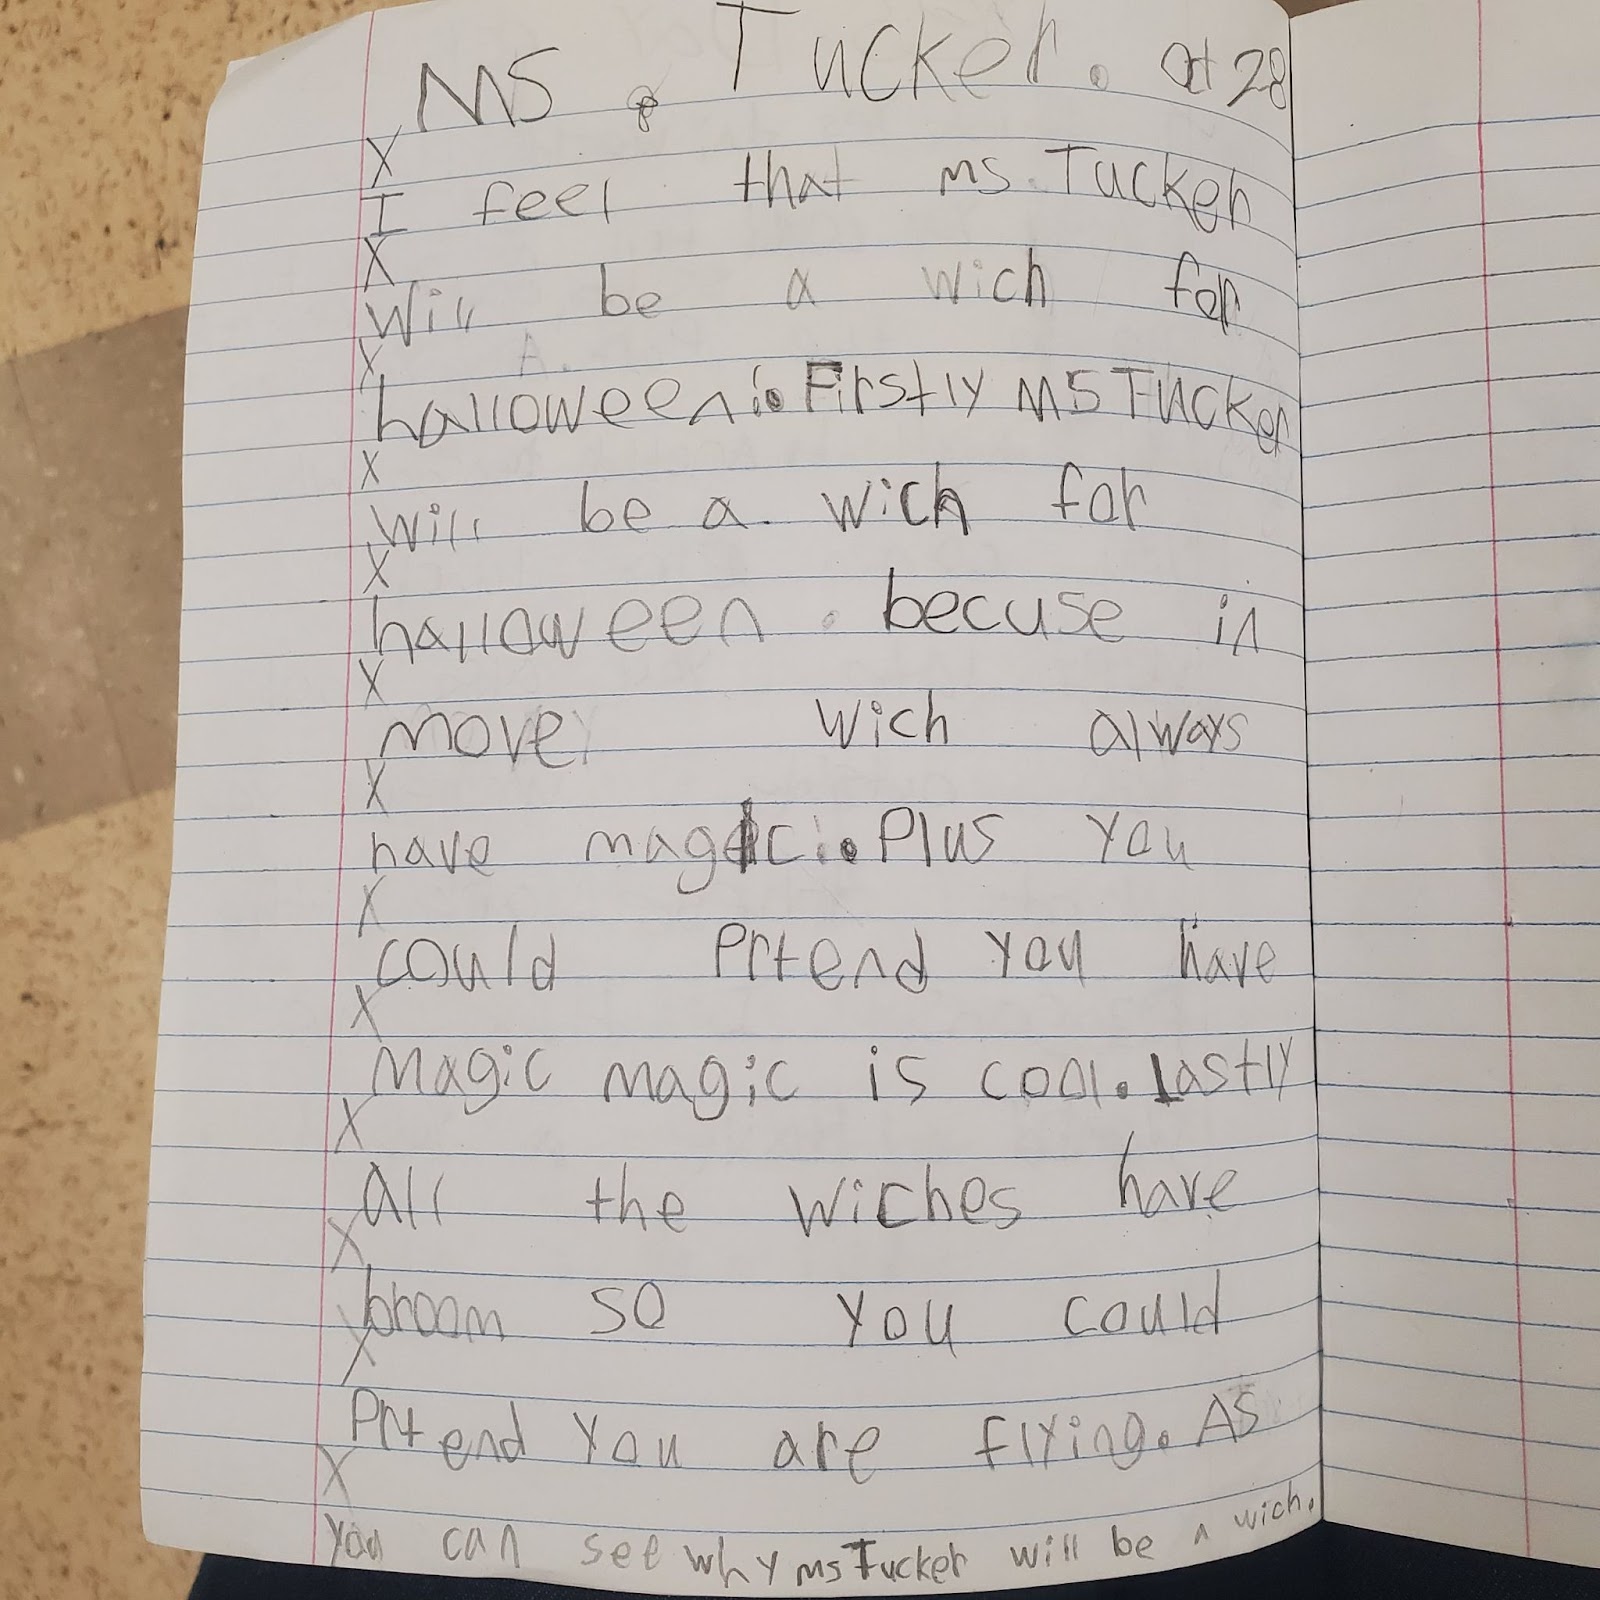 MS. Tucker. oct 28
X
I feel that ms. Tucker
X
Will be a wich for
X
halloween. Firstly MS Tucker
X
Will be a wich for
X
halloween. becuse in
X
move wich always
X
have magic. Plus you
X
could Prtend you have
X
Magic magic is cool. lastly
X
All the wiches have
X
broom so you could
X
Prtend you are flying. As
X
you can see why ms Tucker will be a wich.